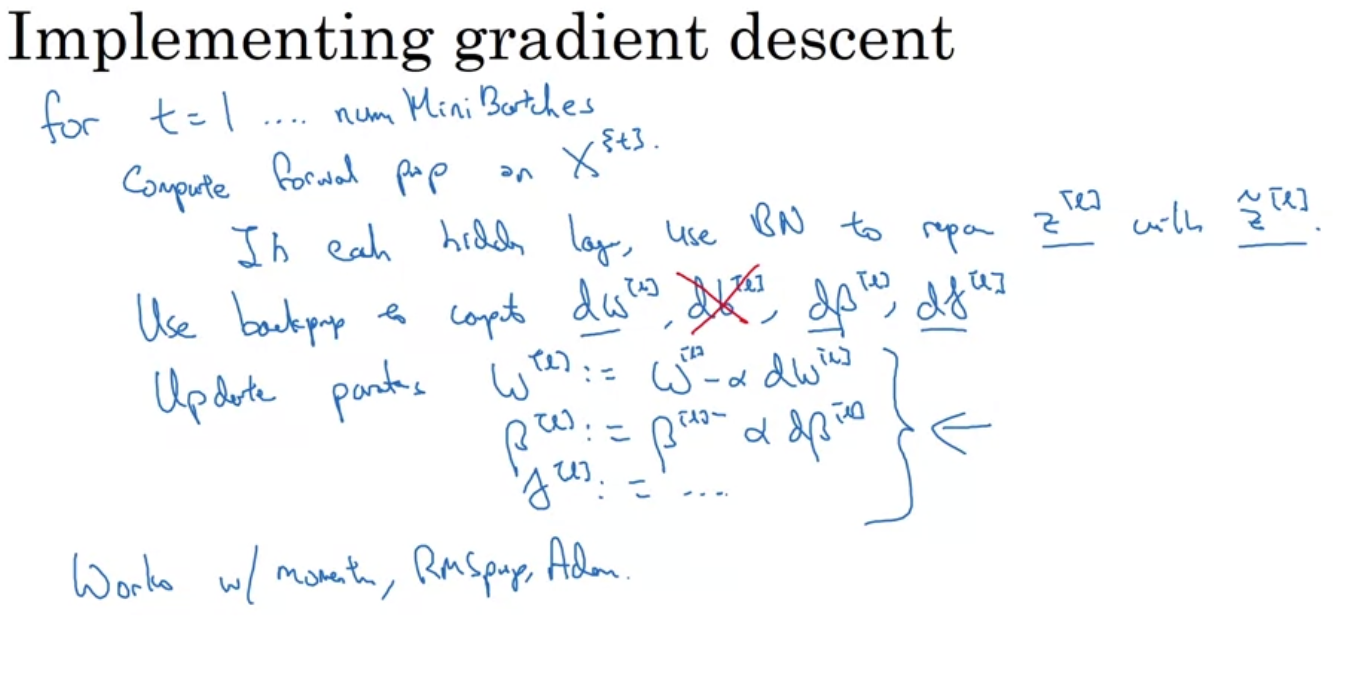 Implementing gradient descent
for t = 1 .... num Mini Batches
Compute forward prop on X^{t}.
In each hidden layer, use BN to replace z^[l] with z̃^[l].
Use backprop to compute dw^[l], db^[l], dβ^[l], dγ^[l]
Update params W^[l] := W^[l] - α dw^[l]
β^[l] := β^[l] - α dβ^[l]
γ^[l] := ....
Works w/ momentum, RMSprop, Adam.